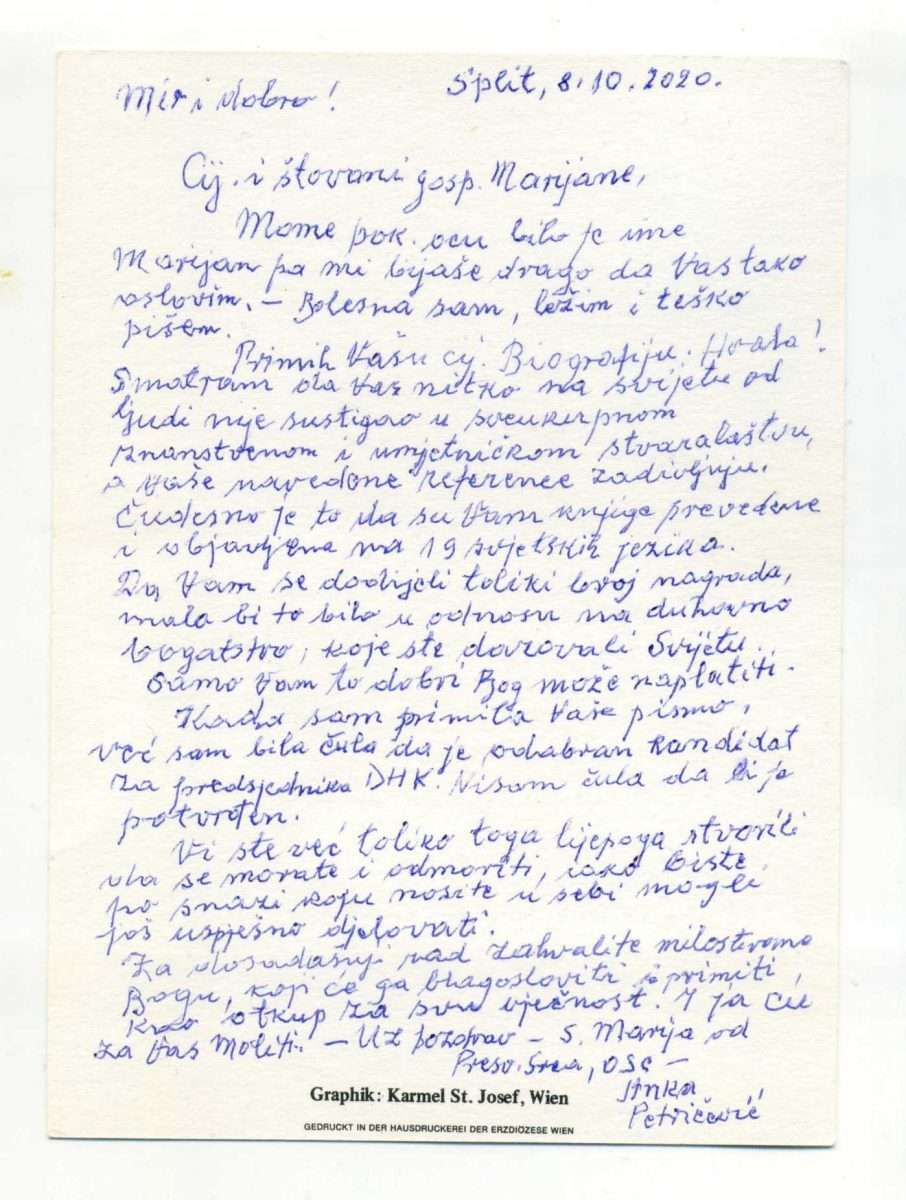 Mir i dobro!
Split, 8.10.2020.
Cij. i štovani gosp. Marijane,
Mome pok. ocu bilo je ime
Marijan pa mi bijaše drago da Vas tako
oslovim. – Bolesna sam, ležim i teško
pišem.
Primih Vašu cij. Biografiju. Hvala!
Smatram da Vas nitko na svijetu od
ljudi nije sustigao u sveukupnom
znanstvenom i umjetničkom stvaralaštvu,
a Vaše navedene reference zadivljuju.
Čudesno je to da su Vam knjige prevedene
i objavljene na 19 svjetskih jezika.
Da Vam se dodijeli toliki broj nagrada,
malo bi to bilo u odnosu na duhovno
bogatstvo, koje ste darovali Svijetu.
Samo Vam to dobri Bog može naplatiti.
Kada sam primila Vaše pismo,
već sam bila čula da je odabran kandidat
za predsjednika DHK. Nisam čula da li je
potvrđen.
Vi ste već toliko toga lijepoga stvorili
da se morate i odmoriti, iako biste
po snazi koju nosite u sebi mogli
još uspješno djelovati.
Za dosadašnji rad zahvalite milostivome
Bogu, koji će ga blagosloviti i primiti
kao otkup za svu vječnost. I ja ću
za Vas moliti. – Uz pozdrav – S. Marija od
Presv. Srca, OSC –
Anka
Petričević
Graphik: Karmel St. Josef, Wien
GEDRUCKT IN DER HAUSDRUCKEREI DER ERZDIÖZESE WIEN